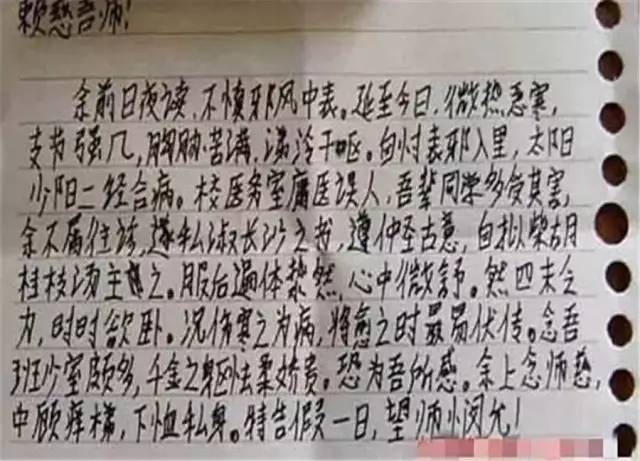 慈吾师!
余前日夜读,不慎邪风中表。延至今日,微热恶寒,
支节强几,胸胁苦满,涕泠干呕。自忖表邪入里,太阳
少阳二经合病。校医务室庸医误人,吾辈同学多受其害,
余不屑往诊,遂私淑长沙之书,遵仲圣古意,自拟柴胡
桂枝汤主之。服后遍体漐然,心中微舒。然四末乏
力,时时欲卧。况伤寒之为病,将愈之时最易伏传。念吾
班少室颇多,千金之躯怯柔娇贵。恐为吾所感。余上念师慈,
中顾庠梯,下恤私身。特告假一日,望师悯允!